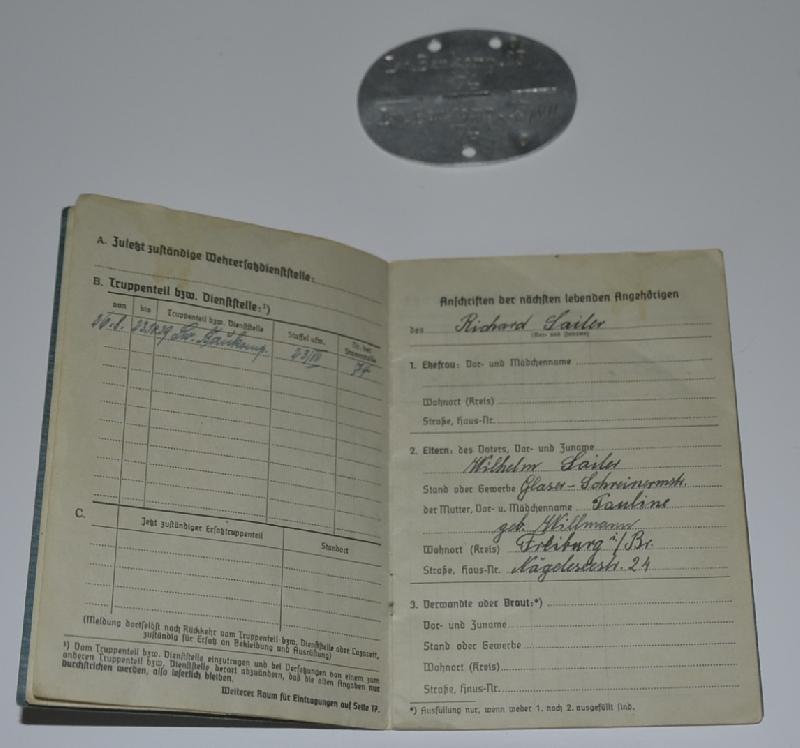 A. Zuletzt zuständige Wehrersatzdienststelle:
B. Truppenteil bzw. Dienststelle:¹)
von bis Truppenteil bzw. Dienststelle Staffel usw. Nr. der
26.8. Baukomp. 23/VII 74
C. Jetzt zuständiger Ersatztruppenteil Standort
(Meldung dortselbst nach Rückkehr vom Truppenteil bzw. Dienststelle oder Lazarett,
zuständig für Ersatz an Bekleidung und Ausrüstung)
¹) Vom Truppenteil bzw. Dienststelle einzutragen und bei Versetzungen von einem zum
anderen Truppenteil bzw. Dienststelle derart abzuändern, daß die alten Angaben nur
durchstrichen werden, also leserlich bleiben.
Weiterer Raum für Eintragungen auf Seite 17.
Anschriften der nächsten lebenden Angehörigen
des Richard Sailer
(Vor- und Zuname)
1. Ehefrau: Vor- und Mädchenname
Wohnort (Kreis)
Straße, Haus-Nr.
2. Eltern: des Vaters, Vor- und Zuname
Wilhelm Sailer
Stand oder Gewerbe Glaser-Schreinermstr.
der Mutter, Vor- u. Mädchenname Pauline
geb. Willmann
Wohnort (Kreis) Freiburg i/Br.
Straße, Haus-Nr. Nägeleseestr. 24
3. Verwandte oder Braut:*)
Vor- und Zuname
Stand oder Gewerbe
Wohnort (Kreis)
Straße, Haus-Nr.
*) Ausfüllung nur, wenn weder 1. noch 2. ausgefüllt sind.